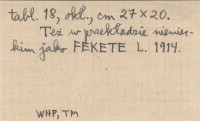 tabl. 18, okł., cm 27 × 20.
Też w przekładzie niemiec-
kim jako FEKETE L. 1914.
WHP, TM